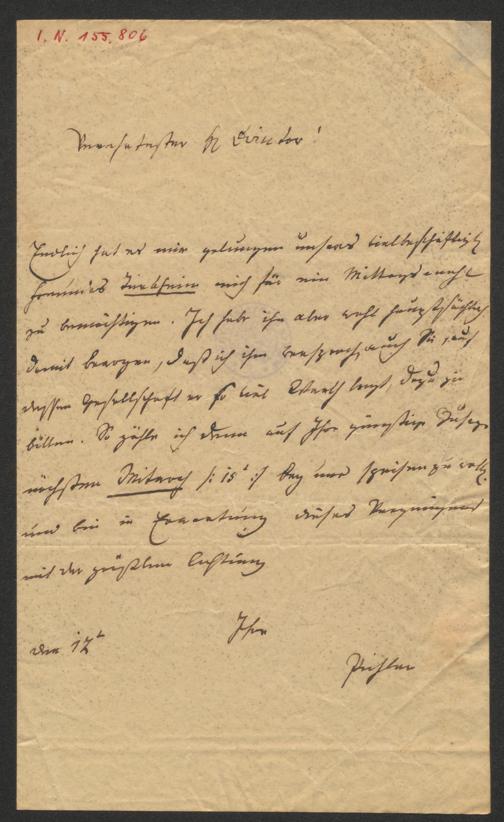 I. N. 155.806
Verehrtester H Director!
Endlich hat es mir gelungen unsers vielbeschäftigt
Freundes mich für ein Mittagsmahl
zu bemächtigen. Ich habe ihn aber wohl hauptsächlich
damit bewogen, daß ich ihm versprach, auch Sie, auf
dessen Gesellschaft er so viel Werth legt, dazu zu
bitten. So zähle ich denn auf Ihre günstige Zusage
nächsten Mittwoch /: 15t :/ bey uns speisen zu woll.
und bin in Erwartung dieses Vergnügens
mit der größten Achtung
Ihr
den 12t
Pichler